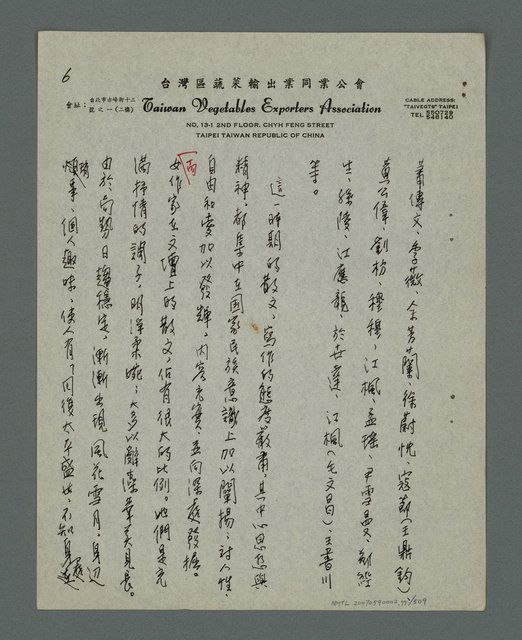 6
台灣區蔬菜輸出業同業公會
會址：台北市赤峰街十三號之一(二樓)
Taiwan Vegetables Exporters Association
NO, 13-1 2ND FLOOR, CHYH FENG STREET
TAIPEI TAIWAN REPUBLIC OF CHINA
CABLE ADDRESS:
"TAIVEGTS" TAIPEI
TEL 550729
548740
蕭傳文、季薇、余芳蘭、徐蔚忱、寇節(王鼎鈞)
黃公偉、劉枋、穆穆、江楓、孟瑤、尹雪曼、郭
生、徐陵、江應龍、於世達、江楓(毛文昌)、王書川
等。
這一時期的散文，寫作的態度嚴肅，其中心思想與
精神，都集中在國家民族意識上加以闡揚，討人性、
自由和愛加以發輝，內容充實，並向深處發掘。
而
女作家在文壇上的散文，佔有很大的比例。她們是充
滿抒情的調子，明淨柔婉，大多以辭藻華美見長。
由於局勢日趨穩定，漸漸出現風花雪月，身邊
瑣事、個人趣味，使人有了回復太平盛世，不知身
NMTL 20070590002
/509